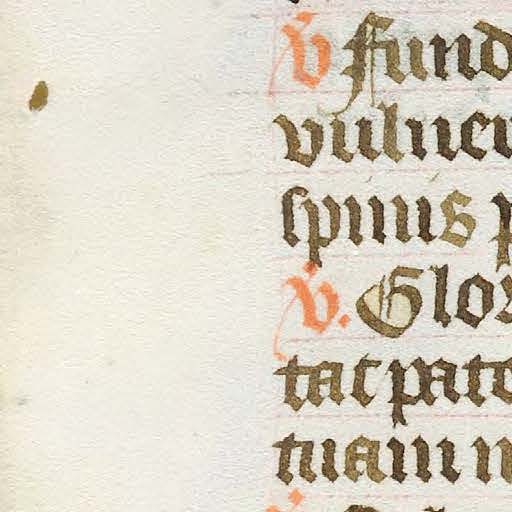 ℣ fund
vulner
spinis p
℣. Glor
tat pate
tuam m